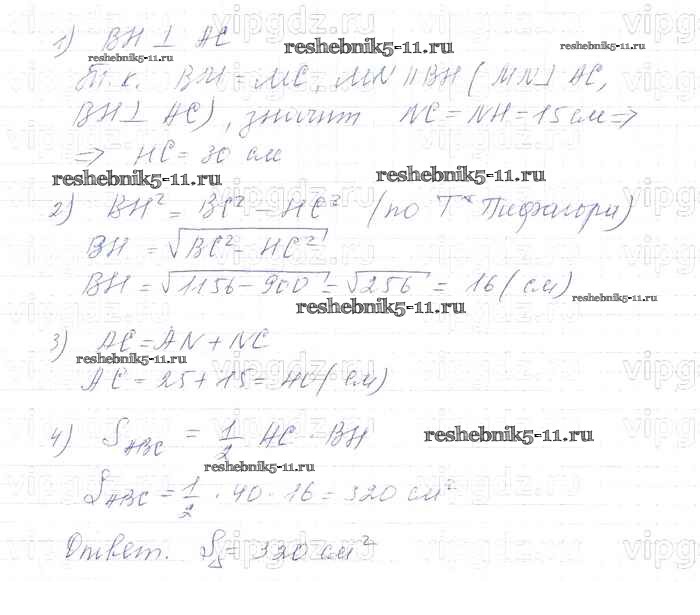 1) BH ⊥ AC
reshebnik5-11.ru
reshebnik5-11.ru
reshebnik5-11.ru
Т.к. BM = MC, MN || BH (MN ⊥ AC,
BH ⊥ AC), значит NC = NH = 15 см ⇒
⇒ HC = 30 см
reshebnik5-11.ru
reshebnik5-11.ru
2) BH² = BC² - HC² (по Т. Пифагора)
BH = √BC² - HC²
BH = √1156 - 900 = √256 = 16 (см)
reshebnik5-11.ru
reshebnik5-11.ru
3) AC = AN + NC
reshebnik5-11.ru
AC = 25 + 15 = 40 (см)
4) S ABC = 1/2 AC · BH
reshebnik5-11.ru
reshebnik5-11.ru
S ABC = 1/2 · 40 · 16 = 320 см²
Ответ. SΔ = 320 см²